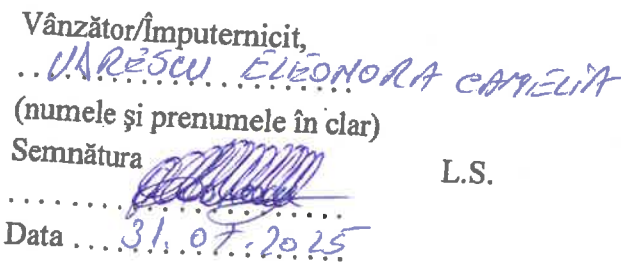 Vânzător/Împuternicit,
..VARESCU ELEONORA CAMELIA
(numele și prenumele în clar)
Semnătura L.S.
....................
Data ....31.07.2025